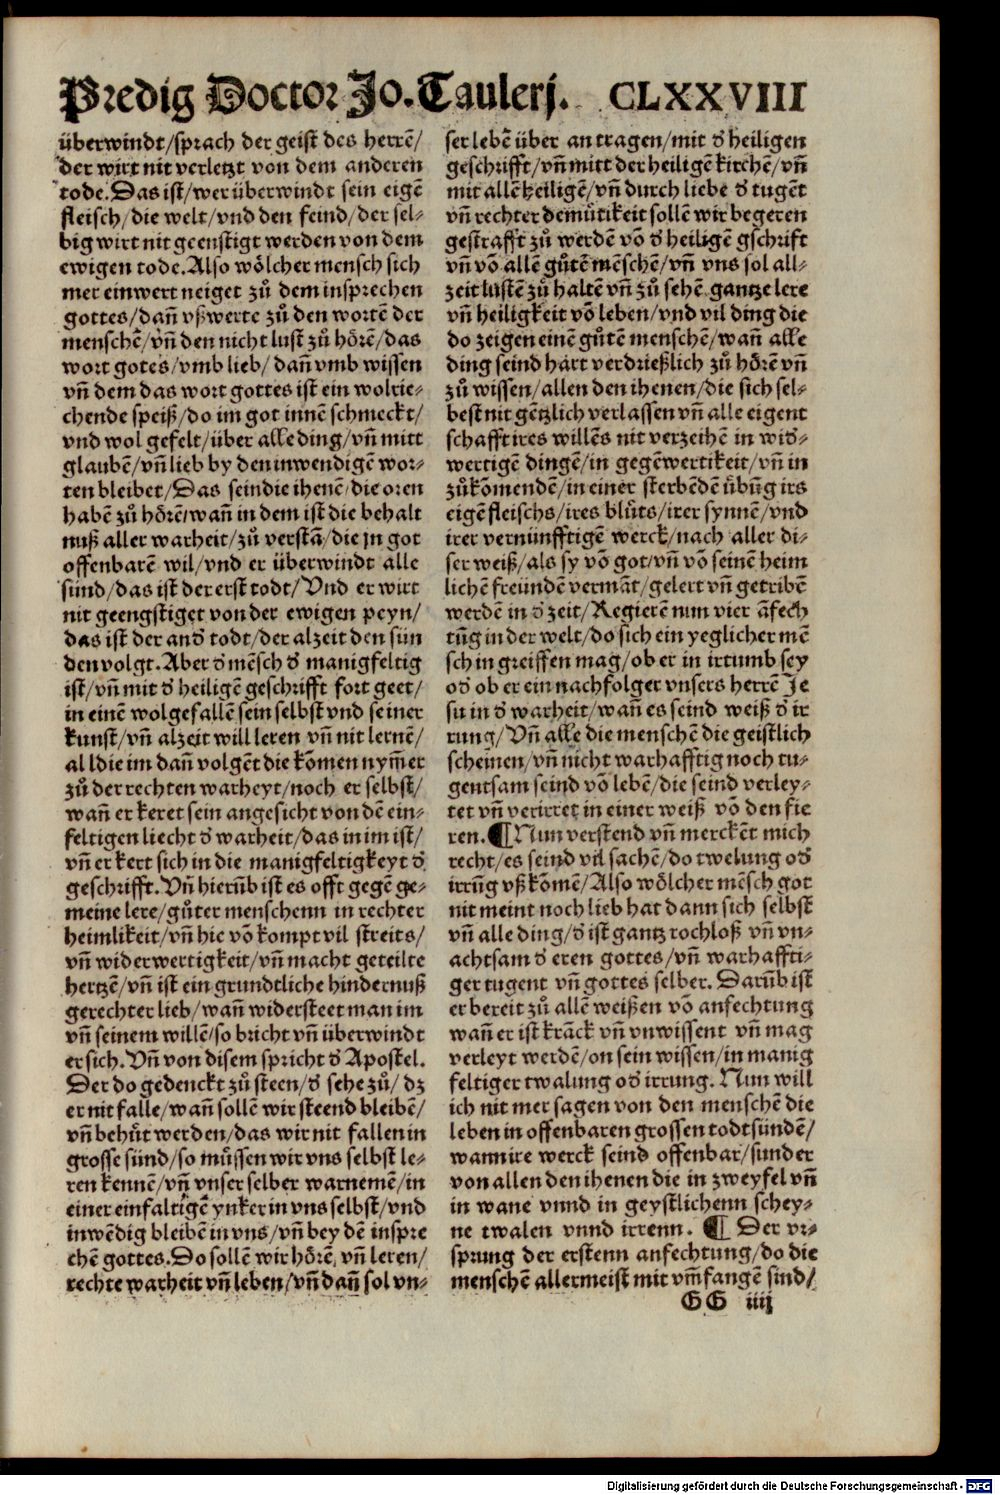 Predig Doctor Jo. Taulerj. CLXXVIII
überwindt/sprach der geist des herrē/
der wirt nit verletzt von dem anderen
tode. Das ist/wer überwindt sein eigē
fleisch/die welt/vnd den feind/der sel⸗
big wirt nit geenstigt werden von dem
ewigen tode. Also woͤlcher mensch sich
mer einwert neiget zů dem insprechen
gottes/dañ vßwerte zů den wortē der
menschē/vñ den nicht lust zů hoͤrē/das
wort gotes/vmb lieb/dañ vmb wissen
vñ dem das wort gottes ist ein wolrie⸗
chende speiß/do im got innē schmeckt/
vnd wol gefelt/über alle ding/vñ mitt
glaubē/vñ lieb by den inwendigē wor⸗
ten bleibet/Das sein die ihenē/die oren
habē zů hoͤrē/wañ in dem ist die behalt
nuß aller warheit/zů verstā/die jn got
offenbarē wil/vnd er überwindt alle
sünd/das ist der erst todt/Vnd er wirt
nit geengstiget von der ewigen peyn/
das ist der anđ todt/der alzeit den sün
den volgt. Aber đ mēsch đ manigfeltig
ist/vñ mit đ heiligē geschrifft fort geet/
in einē wolgefallē sein selbst vnd seiner
kunst/vñ alzeit will leren vñ nit lernē/
al ldie im dañ volgēt die kōmen nym̄er
zů der rechten warheyt/noch er selbst/
wañ er keret sein angesicht von dē ein⸗
feltigen liecht đ warheit/das in im ist/
vñ er kert sich in die manigfeltigkeyt đ
geschrifft. Vñ hierūb ist es offt gegē ge⸗
meine lere/gůter menschenn in rechter
heimlikeit/vñ hie vō kompt vil streits/
vñ widerwertigkeit/vñ macht geteilte
hertzē/vñ ist ein grundtliche hindernuß
gerechter lieb/wañ widersteet man im
vñ seinem willē/so bricht vñ überwindt
er sich. Vñ von disem spricht đ Apostel.
Der do gedenckt zů steen/đ sehe zů/dz
er nit falle/wañ sollē wir steend bleibē/
vñ behuͤt werden/das wir nit fallen in
grosse sünd/so muͤssen wir vns selbst le⸗
ren kennē/vñ vnser selber warnemē/in
einer einfaltigē ynker in vns selbst/vnd
inwēdig bleibē in vns/vñ bey dē inspre
chē gottes. Do sollē wir hoͤrē/vñ leren/
rechte warheit vñ leben/vñ dañ sol vn⸗
ser lebē über an tragen/mit đ heiligen
geschrifft/vñ mitt der heiligē kirchē/vñ
mit allē heiligē/vñ durch liebe đ tugēt
vñ rechter demuͤtikeit sollē wir begeren
gestrafft zů werdē vō đ heiligē gschrift
vñ vō allē gůtē mēschē/vñ vns sol all⸗
zeit lustē zů haltē vñ zů sehē gantze lere
vñ heiligkeit vō leben/vnd vil ding die
do zeigen einē gůtē menschē/wañ alle
ding seind hart verdrießlich zů hoͤrē vñ
zů wissen/allen den ihenen/die sich sel⸗
best nit gētzlich verlassen vñ alle eigent
schafft ires willēs nit verzeihē in wiđ⸗
wertigē dingē/in gegēwertikeit/vñ in
zůkōmendē/in einer sterbēdē uͤbūg irs
eigē fleischs/ires bluͤts/irer synnē/vnd
irer vernünfftigē werck/nach aller di⸗
ser weiß/als sy vō got/vñ vō seinē heim
lichē freündē vermāt/gelert vñ getribē
werdē in đ zeit/Regierē nun vier āfech
tūg in der welt/do sich ein yeglicher mē
sch in greiffen mag/ob er in irtumb sey
ođ ob er ein nachfolger vnsers herrē Je
su in đ warheit/wañ es seind weiß đ ir
rung/Vñ alle die menschē die geistlich
scheinen/vñ nicht warhafftig noch tu⸗
gentsam seind vō lebē/die seind verley⸗
tet vñ verirret in einer weiß vō den fie
ren. ¶ Nun verstend vñ merckēt mich
recht/es seind vil sachē/do twelung ođ
irrūg vß kōmē/Also woͤlcher mēsch got
nit meint noch lieb hat dann sich selbst
vñ alle ding/đ ist gantz rochloß vñ vn⸗
achtsam đ eren gottes/vñ warhaffti⸗
ger tugent vñ gottes selber. Darūb ist
er bereit zů allē weißen vō anfechtung
wañ er ist krāck vñ vnwissent vñ mag
verleyt werdē/on sein wissen/in manig
feltiger twalung ođ irrung. Nun will
ich nit mer sagen von den menschē die
leben in offenbaren grossen todtsündē/
wann ire werck seind offenbar/sunder
von allen den ihenen die in zweyfel vñ
in wane vnnd in geystlichenn schey⸗
ne twalen vnnd irrenn. ¶ Der vr⸗
sprung der erstenn anfechtung/do die
menschē allermeist mit vm̄fangē sind/
GG iiij
Digitalisierung gefördert durch die Deutsche Forschungsgemeinschaft - DFG